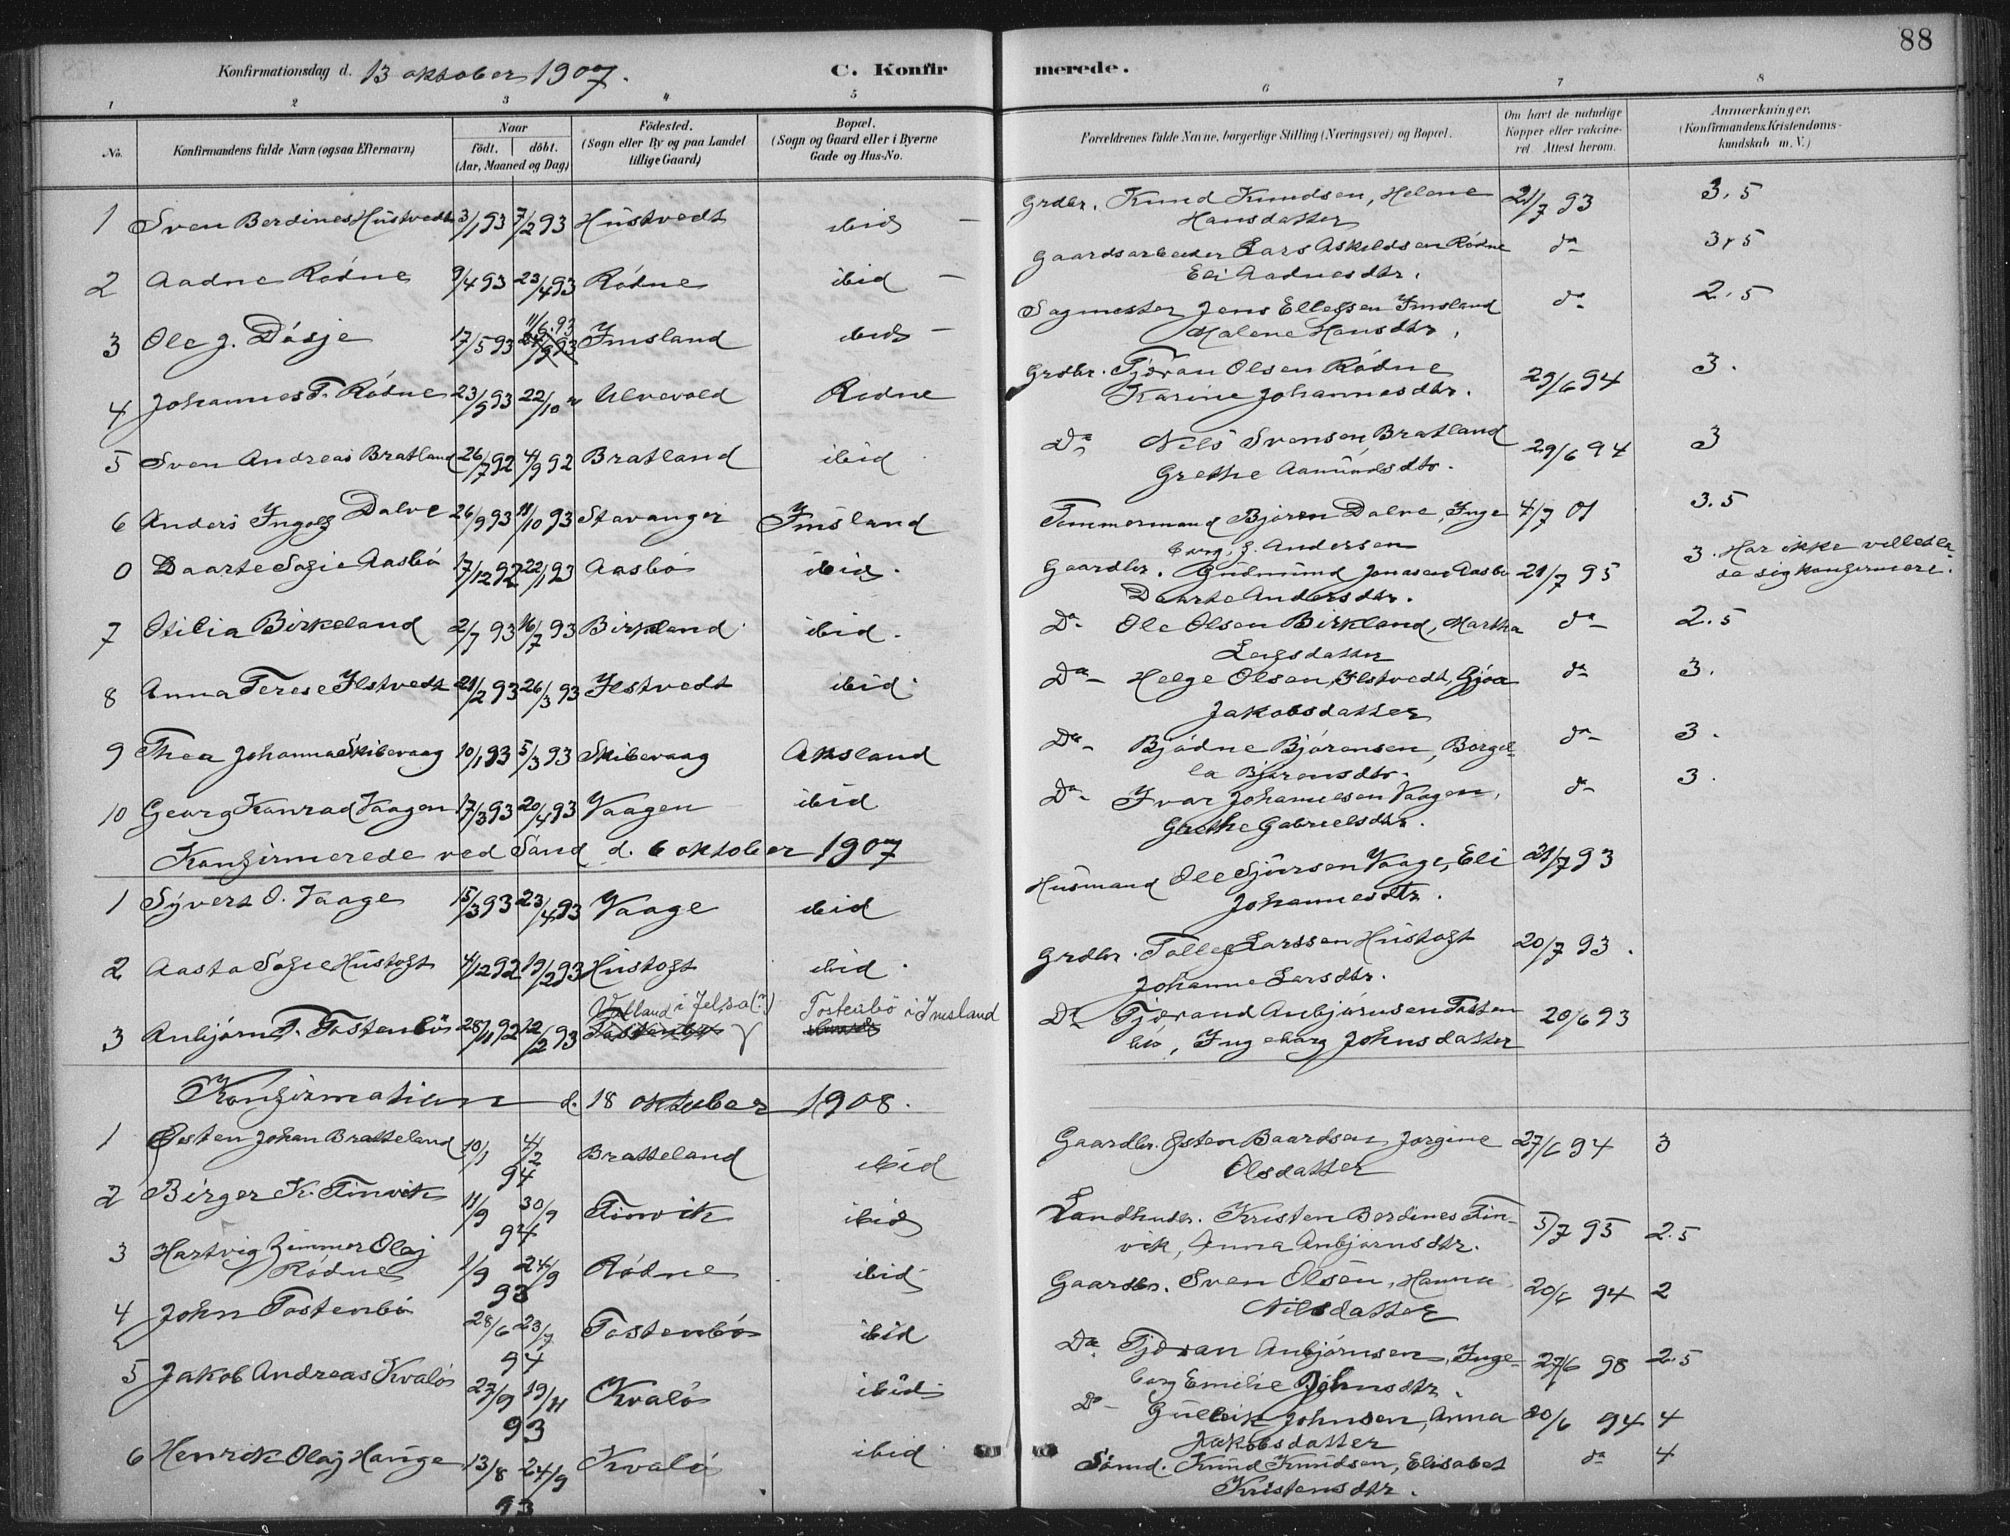 88
Konfirmationsdag d. 13 oktober 1907. C. Konfirmerede.
1 2 3 4 5 6 7 8
No. Konfirmandens fulde Navn (ogsaa Efternavn) Naar født. døbt. (Aar, Maaned og Dag) Fødested. (Sogn eller By og paa Landet tillige Gaard) Bopæl. (Sogn og Gaard eller i Byerne Gade og Hus-No. Forældrenes fulde Navne, borgerlige Stilling (Næringsvei) og Bopæl. Om havt de naturlige Kopper eller vaccineret. Attest herom. Anmærkninger. (Konfirmandens Kristendomskundskab m. V.)
1 Sven Berdines Hustvedt 3/1 93 7/2 93 Hustvedt ibid – Grdbr. Knud Knudsen, Helene 21/7 93 3.5
Hansdatter
2 Aadne Rødne 9/4 93 23/4 93 Rødne ibid – Gaardsarbeider Lars Askildsen Rødne da 3,5
Eli Aadnesdtr.
3 Ole J. Døsje 17/5 93 11/6 93 Imsland ibid – Sagmester Jens Ellefsen Imsland da 2.5
Malene Hansdtr.
4 Johannes T. Rødne 23/9 93 22/10 " Alvevold Rødne Grdbr. Tjæran Olsen Rødne 29/6 94 3.
Karine Johannesdtr.
5 Sven Andreas Bratland 26/7 92 4/9 92 Bratland ibid Da Nils Svensen Bratland 29/6 94 3
Grethe Aamundsdtr.
6 Anders Ingolf Dalve 26/9 93 11/10 93 Stavanger Imsland Tømmermand Bjørn Dalve, Inge 4/7 01 3.5
borg J. Andersen
0 Daarte Sofie Aasbø 17/12 92 22/1 93 Aasbø ibid. Gaardbr. Gudmund Jonasen Aasbø 21/7 95 3. Har ikke villet la-
Daarte Andersdtr. de sig konfirmere.
7 Otilia Birkeland 2/7 93 16/7 93 Birkeland ibid. Da Ole Olsen Birkland, Martha da 2.5
Larsdatter
8 Anna Terese Ilstvedt 21/2 93 26/3 93 Ilstvedt ibid. Da Helge Olsen Ilstvedt, Gjøa da 3.
Jakobsdatter
9 Thea Johanna Skibevaag 10/1 93 5/3 93 Skibevaag Aksland Da Bjødne Bjørensen, Borgel- da 3.
la Bjørensdtr.
10 Georg Konrad Vaagen 17/3 93 20/4 93 Vaagen ibid Da Ivar Johannesen Vaagen, da 3.
Grethe Gabrielsdtr.
Konfirmerede ved Sand d. 6 oktober 1907
1 Syvert O. Vaage 15/3 93 23/4 93 Vaage ibid Husmand Ole Sjursen Vaage, Eli 21/7 93
Johannesdtr.
2 Aasta Sofie Hustoft 4/12 92 19/2 93 Hustoft ibid. Grdbr. Tollef Larssen Hustoft 20/7 93.
Johanne Larsdtr.
3 Anbjørn T. Tostenbø 28/11 92 12/2 93 Volland i Jelsa (?) Tostenbø i Imsland Da Tjærand Anbjørnsen Tosten 20/6 93
bø, Ingeborg Johnsdatter
Konfirmation d. 18 oktober 1908.
1 Østen Johan Bratteland 10/1 4/2 94 Bratteland ibid Gaardbr. Østen Baardsen, Jorgine 27/6 94 3
Olsdatter
2 Birger K. Tinvik 11/9 30/9 94 Tinvik ibid Landhndlr. Kristen Berdines Tin- 5/7 95 2.5
vik, Anna Anbjørnsdtr.
3 Hartvig Zimmer Olaj Rødne 1/9 24/9 93 Rødne ibid Gaardbr. Sven Olsen, Hanna 20/6 94 2
Nilsdatter
4 John Tostenbø 28/6 23/7 94 Tostenbø ibid Da Tjæran Anbjørnsen, Inge- 27/6 98 2.5
borg Emilie Johnsdtr.
5 Jakob Andreas Kvalø 27/9 19/11 93 Kvalø ibid Da Gullik Johnsen, Anna 20/6 94 4
Jakobsdatter
6 Henrik Olaj Hauge 13/8 24/9 93 Kvalø ibid Sømd. Knud Knudsen, Elisabet da 4
Kristensdtr.